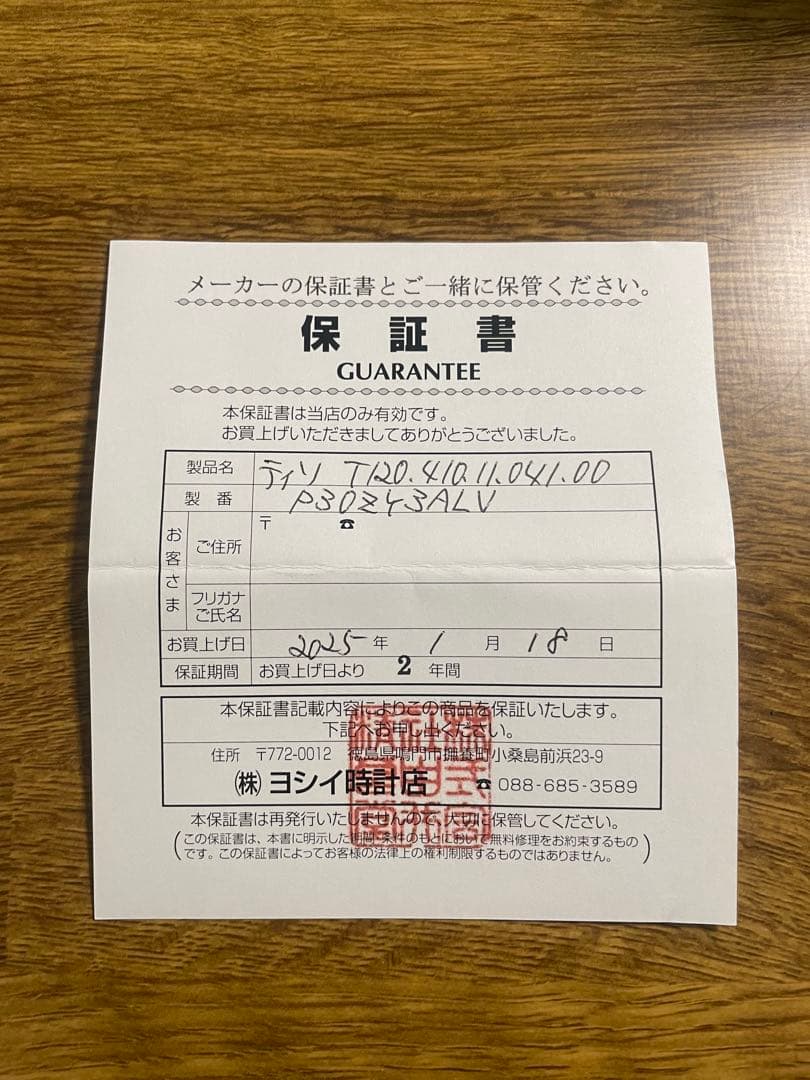 メーカーの保証書とご一緒に保管ください。
保証書
GUARANTEE
本保証書は当店のみ有効です。
お買上げいただきましてありがとうございました。
製品名 ティソ T120.410.11.041.00
製番 P30Z43ALV
お客さま
ご住所 〒 ☎
フリガナ
ご氏名
お買上げ日 2025年 1月 18日
保証期間 お買上げ日より 2 年間
本保証書記載内容によりこの商品を保証いたします。
下記へお申し出ください。
住所 〒772-0012 徳島県鳴門市撫養町小桑島前浜23-9
㈱ヨシイ時計店 ☎088-685-3589
本保証書は再発行いたしませんので、大切に保管してください。
(この保証書は、本書に明示した期間、条件のもとにおいて無料修理をお約束するもの
です。この保証書によってお客様の法律上の権利制限するものではありません。)